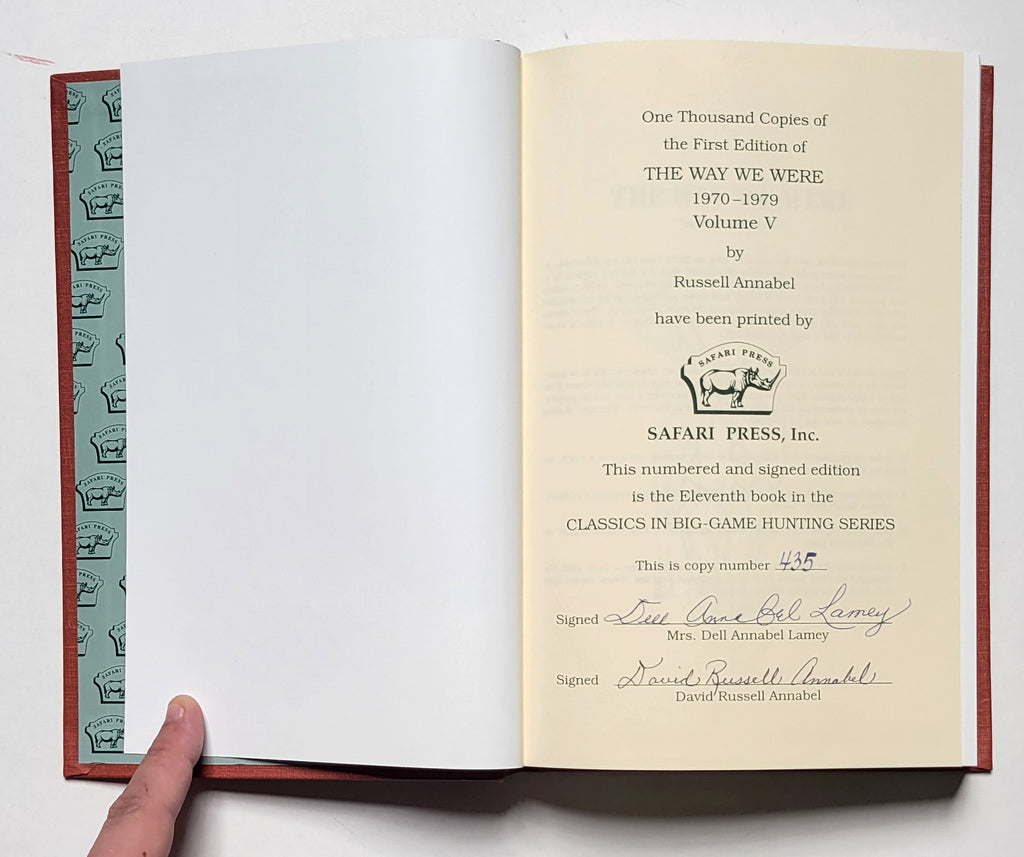 One Thousand Copies of
the First Edition of
THE WAY WE WERE
1970–1979
Volume V
by
Russell Annabel
have been printed by
SAFARI PRESS
SAFARI PRESS, Inc.
This numbered and signed edition
is the Eleventh book in the
CLASSICS IN BIG-GAME HUNTING SERIES
This is copy number 435
Signed Dell Annabel Lamey
Mrs. Dell Annabel Lamey
Signed David Russell Annabel
David Russell Annabel